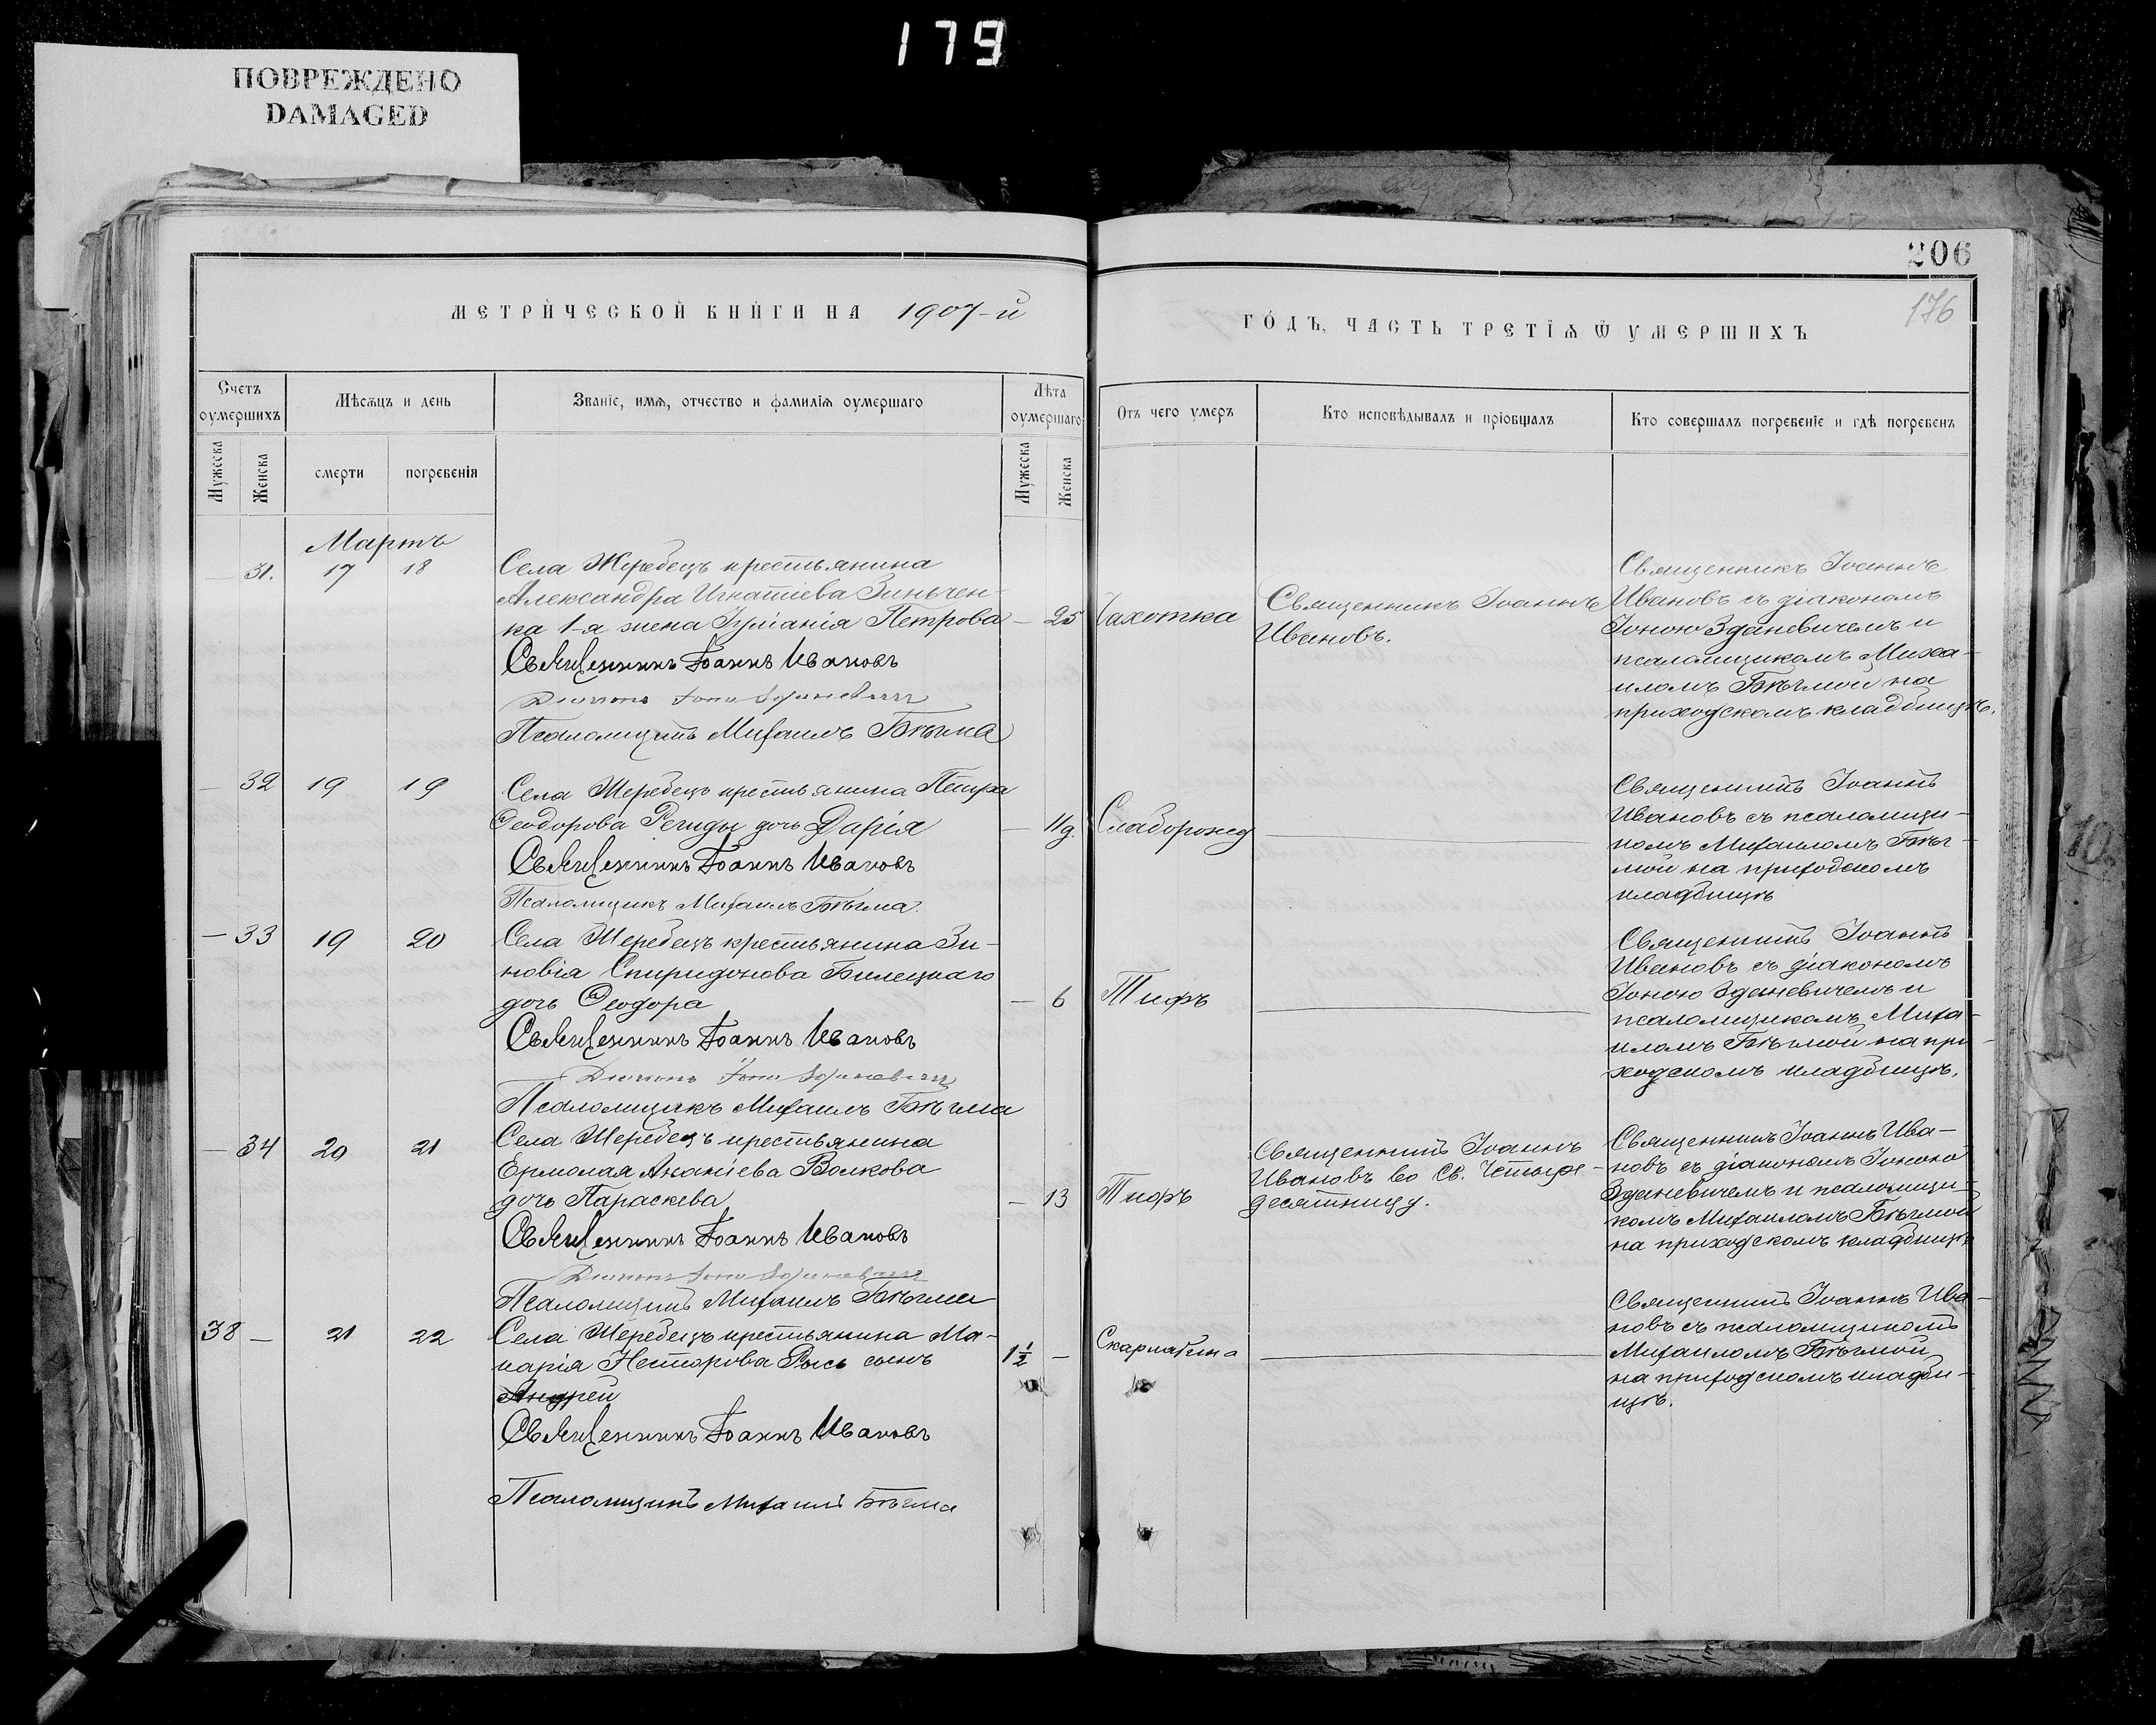 179
ПОВРЕЖДЕНО
DAMAGED
МЕТРИЧЕСКОЙ КНИГИ НА 1907-й
Счетъ оумершихъ
Мѣсяцъ и день
Званіе, имя, отчество и фамилія оумершаго
Лѣта оумершаго
Мужеска
Женска
смерти
погребенія
Мужеска
Женска
Мартъ
31. 17 18
Села Жеребецъ крестьянина
Александра Игнатіева Зиньчен-
ка 1-я жена Іуліанія Петрова — 25
Священникъ Іоаннъ Ивановъ
Діаконъ Іона Зданевичъ
Псаломщикъ Михаилъ Бѣгма
— 32 19 19
Села Жеребецъ крестьянина Петра
Ѳеодорова дочь Дарія — 11д.
Священникъ Іоаннъ Ивановъ
Псаломщикъ Михаилъ Бѣгма.
— 33 19 20
Села Жеребецъ крестьянина Зи-
новія Спиридонова Билецкаго
дочь Ѳеодора — 6
Священникъ Іоаннъ Ивановъ
Діаконъ Іона Зданевичъ
Псаломщикъ Михаилъ Бѣгма
— 34 20 21
Села Жеребецъ крестьянина
Ермолая Ананіева Волкова
дочь Параскева — 13
Священникъ Іоаннъ Ивановъ
Діаконъ Іона Зданевичъ
Псаломщикъ Михаилъ Бѣгма
38 — 21 22
Села Жеребецъ крестьянина Ма-
карія Несторова Рысь сынъ
Андрей 1½ —
Священникъ Іоаннъ Ивановъ
Псаломщикъ Михаилъ Бѣгма
206
176
ГОДЪ, ЧАСТЬ ТРЕТІЯ Ѿ УМЕРШИХЪ
Отъ чего умеръ
Кто исповѣдывалъ и пріобщалъ
Кто совершалъ погребеніе и гдѣ погребенъ
Чахотка
Священникъ Іоаннъ
Ивановъ.
Священникъ Іоаннъ
Ивановъ съ діакономъ
Іоною Зданевичемъ и
псаломщикомъ Миха-
иломъ Бѣгмой на
приходскомъ кладбищѣ.
Слаборожд
Священникъ Іоаннъ
Ивановъ съ псаломщи-
комъ Михаиломъ Бѣг-
мой на приходскомъ
кладбищѣ
Тифъ
Священникъ Іоаннъ
Ивановъ съ діакономъ
Іоною Зданевичемъ и
псаломщикомъ Миха-
иломъ Бѣгмой на при-
ходскомъ кладбищѣ.
Тифъ
Священникъ Іоаннъ
Ивановъ во Св. Четыре-
десятницу.
Священникъ Іоаннъ Ива-
новъ съ діакономъ Іоною
Зданевичемъ и псаломщи-
комъ Михаиломъ Бѣгмой
на приходскомъ кладбищѣ
Скарлатина
Священникъ Іоаннъ Ива-
новъ съ псаломщикомъ
Михаиломъ Бѣгмой
на приходскомъ кладби-
щѣ.